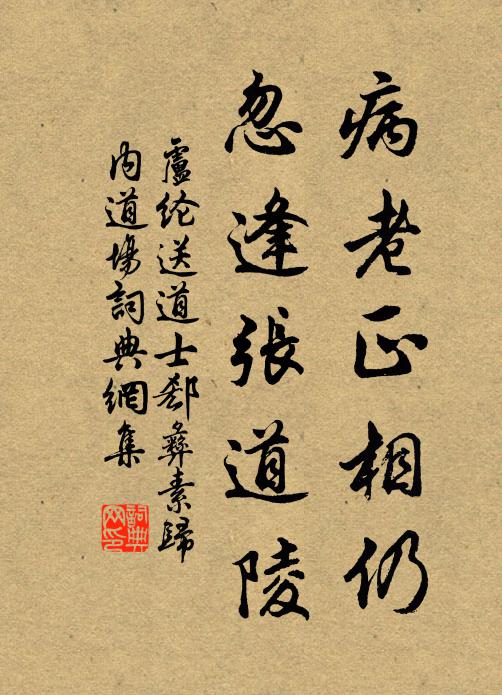 病老正相仍
忽逢張道陵
盧纶送道士郄彝素歸
内道場詞典網集
詞典网印